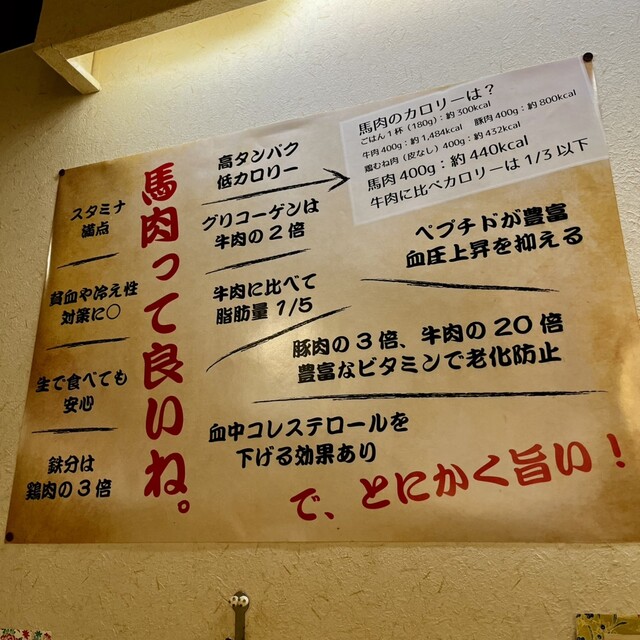 馬肉って良いね。
スタミナ
満点
貧血や冷え性
対策に○
生で食べても
安心
鉄分は
鶏肉の3倍
高タンパク
低カロリー
馬肉のカロリーは？
ごはん1杯（180g）：約300kcal
牛肉400g：約1,484kcal 豚肉400g：約800kcal
鶏むね肉（皮なし）400g：約432kcal
馬肉400g：約440kcal
牛肉に比べカロリーは1/3以下
グリコーゲンは
牛肉の2倍
ペプチドが豊富
血圧上昇を抑える
牛肉に比べて
脂肪量 1/5
豚肉の3倍、牛肉の20倍
豊富なビタミンで老化防止
血中コレステロールを
下げる効果あり
で、とにかく旨い！